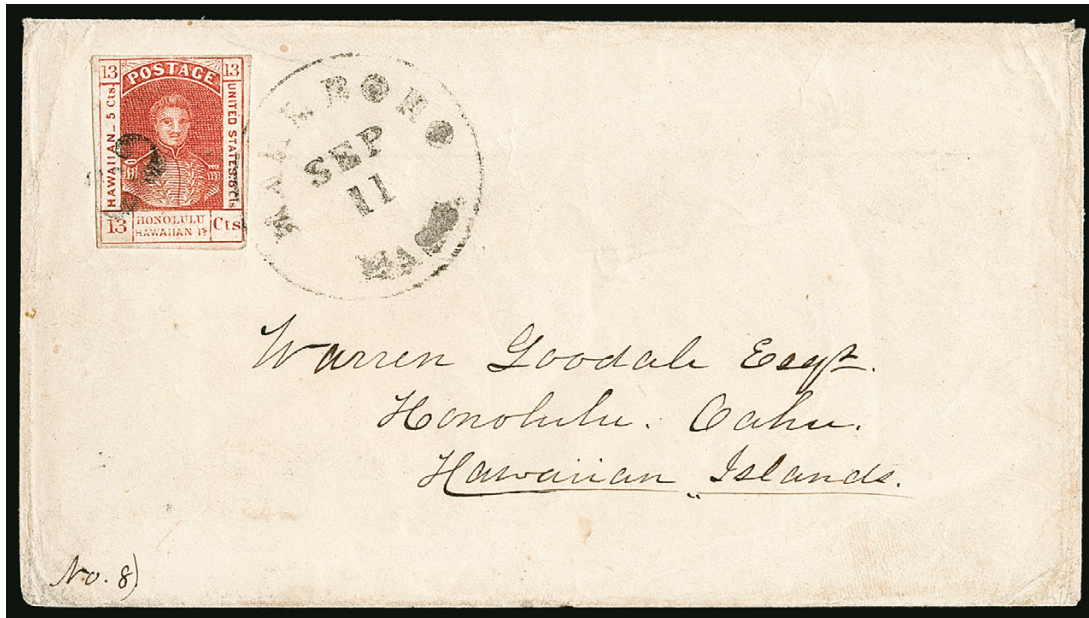 13 POSTAGE 13
HAWAIIAN_5 Cts.
UNITED STATES.8 Cts
HONOLULU
13 HAWAIIAN Is Cts
MARLBORO
SEP
11
MASS
Warren Goodale Esqr.
Honolulu. Oahu.
Hawaiian Islands.
No. 8)